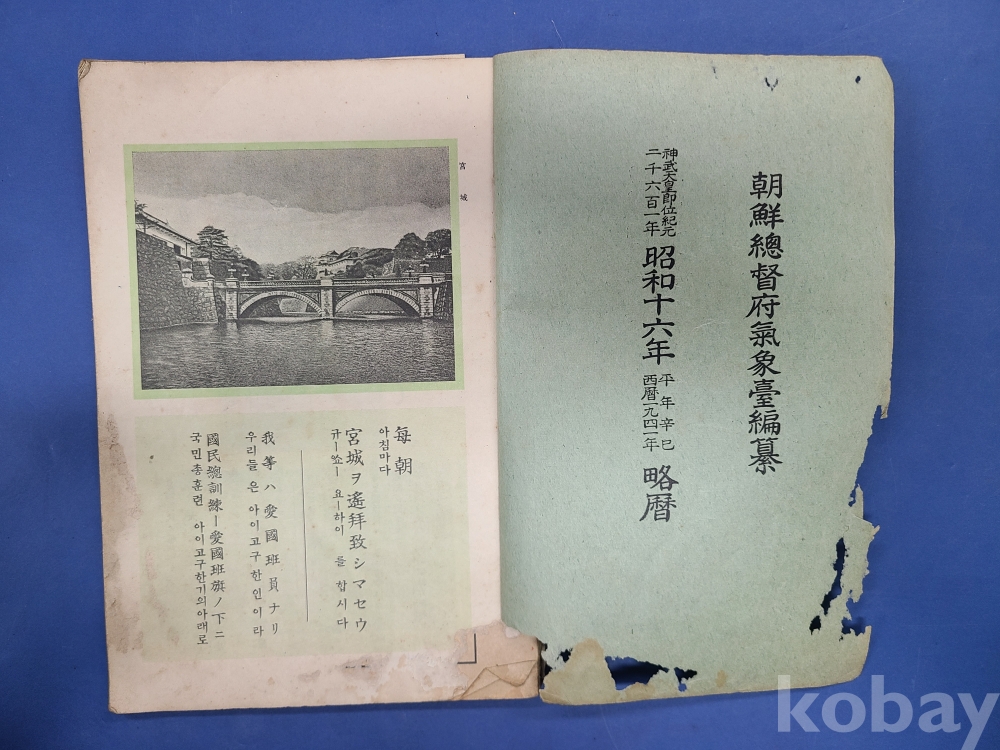 朝鮮總督府氣象臺編纂
神武天皇即位紀元
二千六百一年
昭和十六年
平年辛巳
西暦一九四一年
略暦
宮城
每朝
아침마다
宮城ヲ遙拜致シマセウ
규ー죠ー 요ー하이 를 합시다
我等ハ愛國班員ナリ
우리들은 아이고구한인이라
國民總訓練ー愛國班旗ノ下ニ
국민총훈련 아이고구한기의아래로
kobay